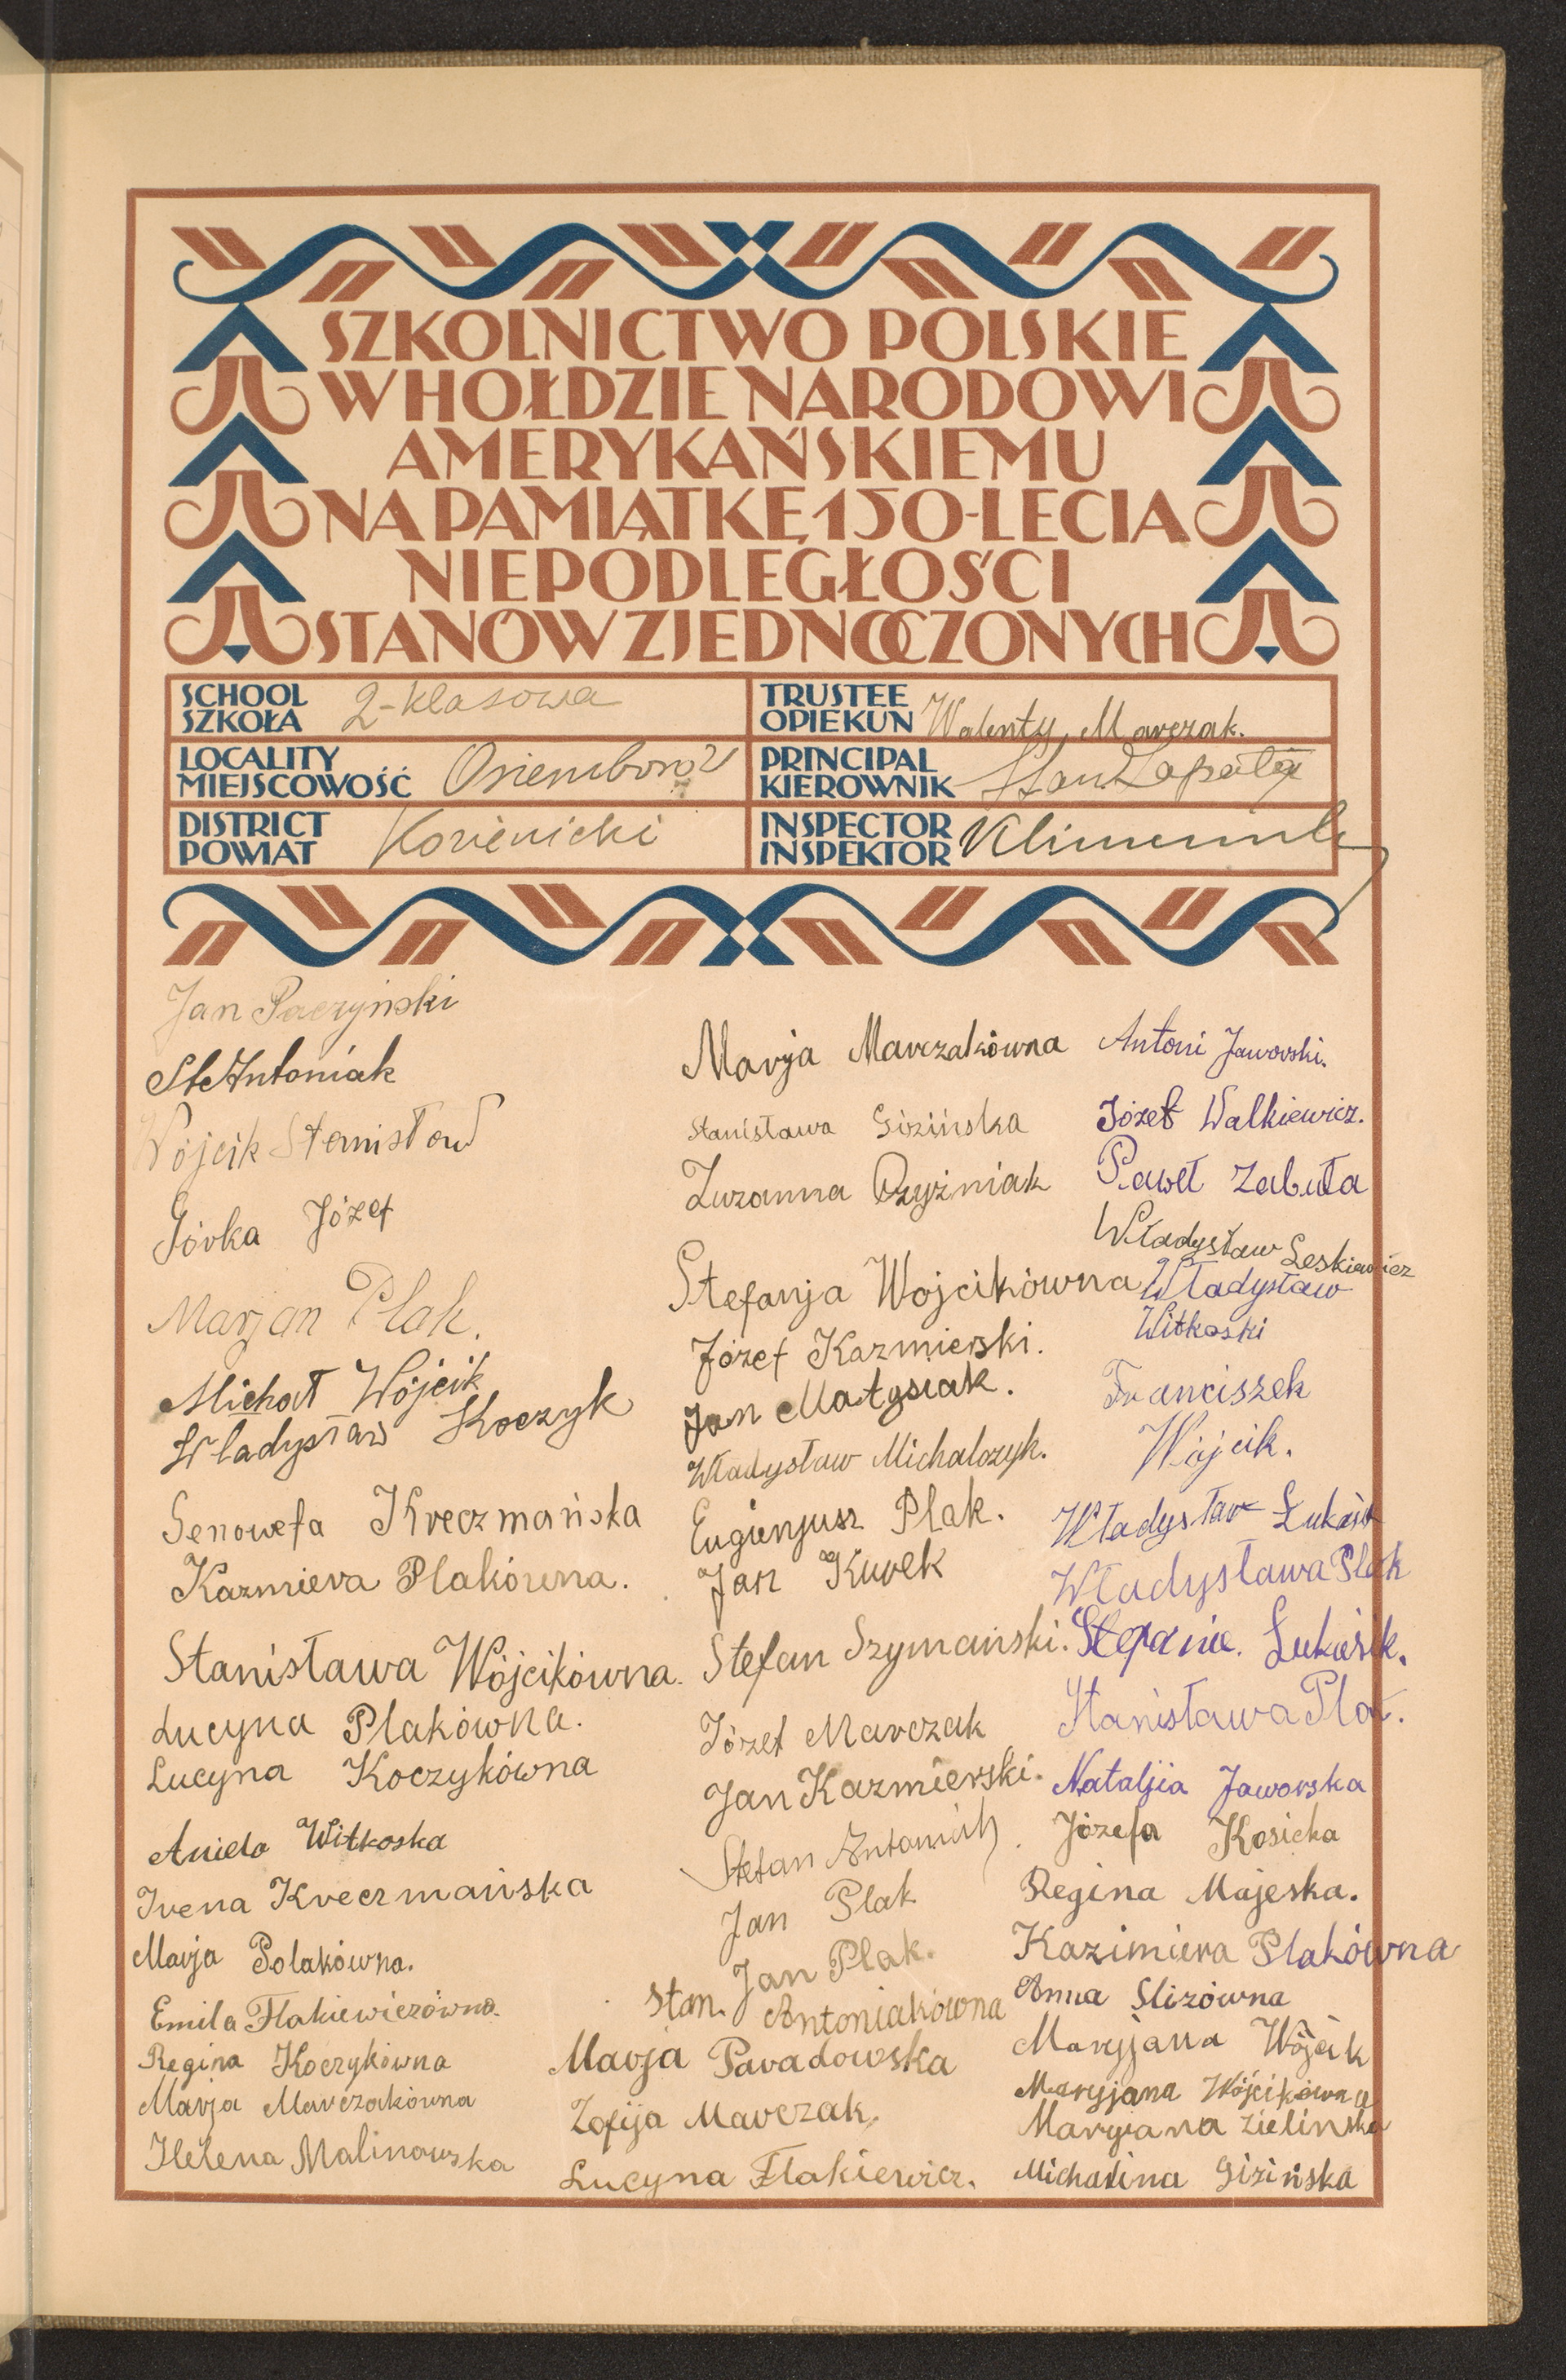 SZKOLNICTWO POLSKIE
W HOŁDZIE NARODOWI
AMERYKAŃSKIEMU
NA PAMIĄTKĘ 150-LECIA
NIEPODLEGŁOŚCI
STANÓW ZJEDNOCZONYCH
SCHOOL
SZKOŁA
2-klasowa
TRUSTEE
OPIEKUN
Walenty Marczak.
LOCALITY
MIEJSCOWOŚĆ
Osiemborów
PRINCIPAL
KIEROWNIK
Stan Łapata
DISTRICT
POWIAT
Kozienicki
INSPECTOR
INSPEKTOR
Jan Paczyński
St Antoniak
Wójcik Stanisław
Górka Józef
Marjan Plak.
Michał Wójcik
Władysław Koczyk
Genowefa Kreczmańska
Kazmiera Plakówna.
Stanisława Wójcikówna.
Lucyna Plakówna.
Lucyna Koczykówna
Aniela Witkoska
Irena Kreczmańska
Marja Polakówna.
Emila Flakiewiczówna.
Regina Koczykówna
Marja Marczakówna
Helena Malinowska
Marja Marczakówna
Stanisława Gizińska
Zuzanna Czyżniak
Stefanja Wojcikówna
Józef Kazmierski.
Jan Matysiak.
Władysław Michalczyk.
Eugienjusz Plak.
Jan Kurek
Stefan Szymański.
Józef Marczak
Jan Kazmierski.
Stefan Antoniak
Jan Plak
Jan Plak.
Stan. Antoniakówna
Marja Paradowska
Zofija Marczak,
Lucyna Flakiewicz.
Antoni Jaworski.
Józef Walkiewicz.
Paweł Zabuła
Władysław Leskiewicz
Władysław
Witkoski
Franciszek
Wójcik.
Władysław Łukasik
Władysława Plak
Stefania. Łukasik.
Stanisława Plak.
Nataljia Jaworska
Józefa Kosicka
Regina Majeska.
Kazimiera Plakówna
Anna Slizówna
Maryjana Wójcik
Maryjana Wójcikówna
Maryana Zielinska
Michalina Gizińska